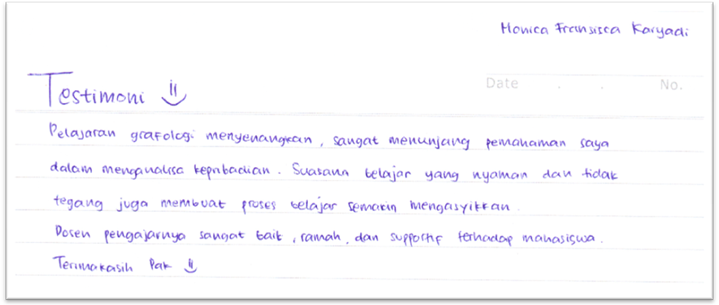 Monica Fransisca Karyadi
Date . . No.
Testimoni
Pelajaran grafologi menyenangkan, sangat menunjang pemahaman saya
dalam menganalisa kepribadian. Suasana belajar yang nyaman dan tidak
tegang juga membuat proses belajar semakin mengasyikkan.
Dosen pengajarnya sangat baik, ramah, dan supportif terhadap mahasiswa.
Terimakasih Pak